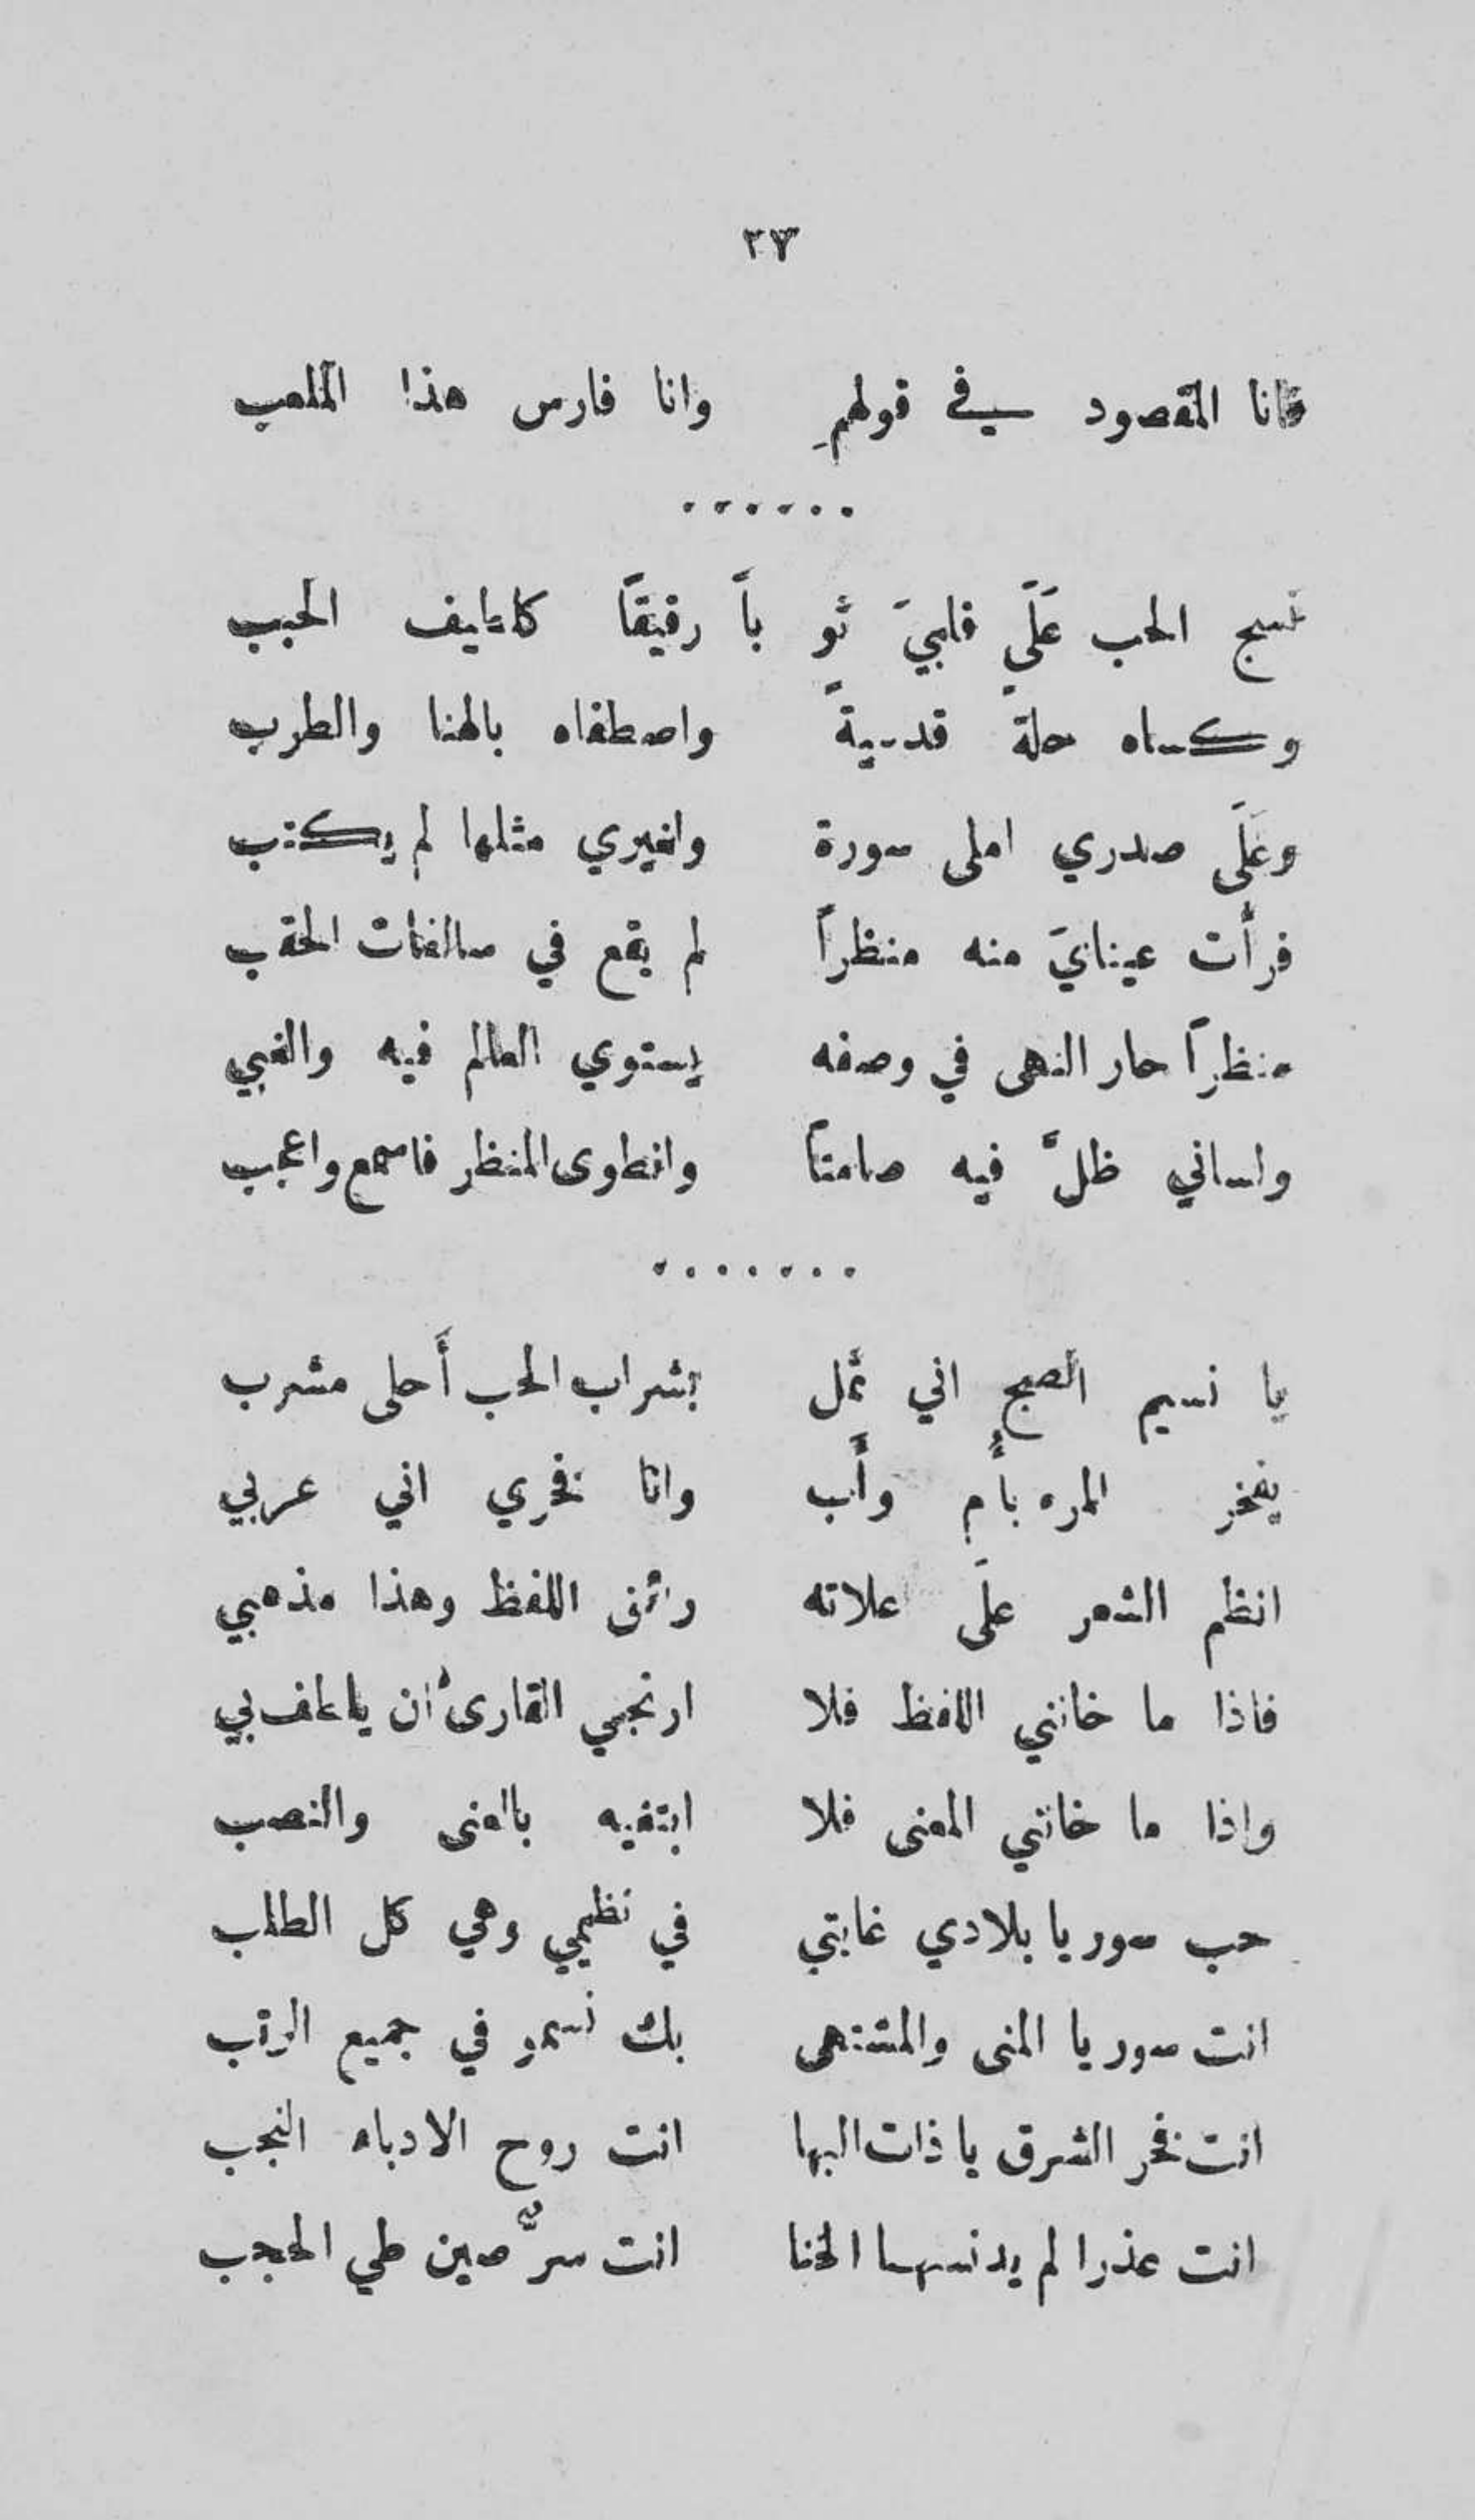 ٢٣
فانا المقصود في قولهمِ وانا فارس هذا الملعب
......
نسج الحب عَلَى قلبيَ ثو باً رقيقاً كلطيف الحبب
وكساه حلةً قدسيةً واصطفاه بالهنا والطرب
وعَلَى صدري املى سورة ولغيري مثلها لم يكتب
فرأَت عينايَ منه منظراً لم يقع في سالفات الحقب
منظراً حار النهى في وصفه يستوي العالم فيه والغبي
ولساني ظلَّ فيه صامتاً وانطوى المنظر فاسمع واعجب
.......
يا نسيم الصبح اني ثمل بشراب الحب أَحلى مشرب
يفخر المرء بأُم وأَب وانا فخري اني عربي
انظم الشعر علَى علاته رائق اللفظ وهذا مذهبي
فاذا ما خانني اللفظ فلا ارتجي القارئ أن يلطف بي
واذا ما خانني المعنى فلا ابتغيه بالعنى والنصب
حب سوريا بلادي غايتي في نظيمي وهي كل الطلب
انت سوريا المنى والمشتهى بك نسمو في جميع الرتب
انت فخر الشرق يا ذات البها انت روح الادباء النجب
انت عذرا لم يدنسها الخنا انت سرٌّ صين طي الحجب